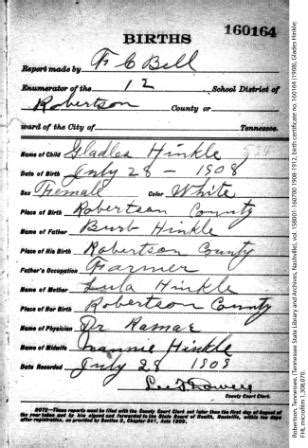 160164
BIRTHS
Report made by F C Bell
Enumerator of the 12 School District of
Robertson County or
ward of the City of Tennessee.
Name of Child Gladles Hinkle
Date of Birth July 28 - 1908
Sex Female Color White
Place of Birth Robertson County
Name of Father Burb Hinkle
Place of His Birth Robertson County
Father's Occupation Farmer
Name of Mother Lula Hinkle
Place of Her Birth Robertson County
Name of Physician Dr
Name of Midwife Nannie Hinkle
Date Recorded July 28 1909
County Court Clerk.
NOTE—These reports must be filed with the County Court Clerk not later than the first day of August of
the year taken and by him signed and forwarded to the State Board of Health, Nashville, within ten days
after registration, as provided by Section 2, Chapter
Robertson, Tennessee, Tennessee State Library and Archives, Nashville, vol. 158001-160700 1908-1912, birth certificate no. 160164 (1908), Glades Hinkle;
FHL microfilm 1,308,070.